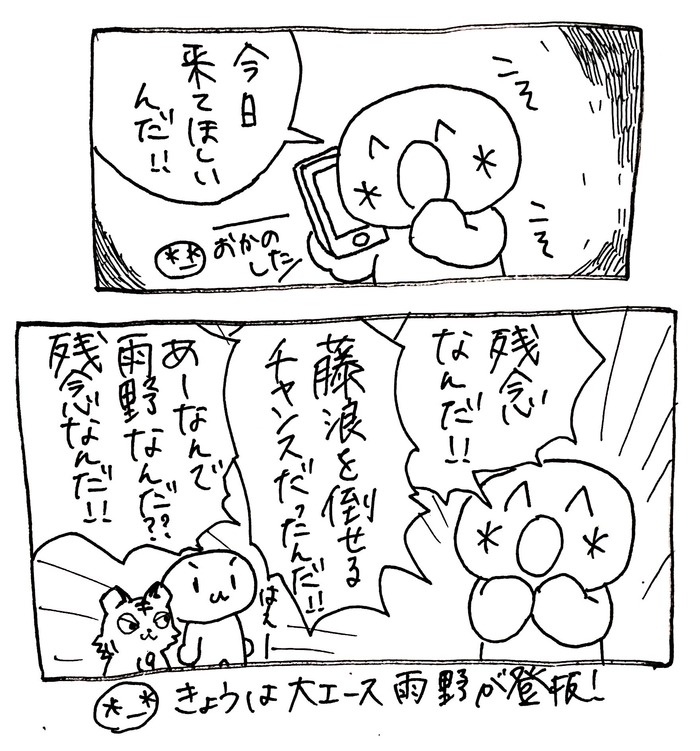 今日
来てほしい
んだ!!
こそ
こそ
おかの
した
残念
なんだ!!
藤浪を倒せる
チャンスだったんだ!!
あーなんで
雨野なんだ??
残念なんだ!!
はえー
19
きょうは大エース雨野が登板!